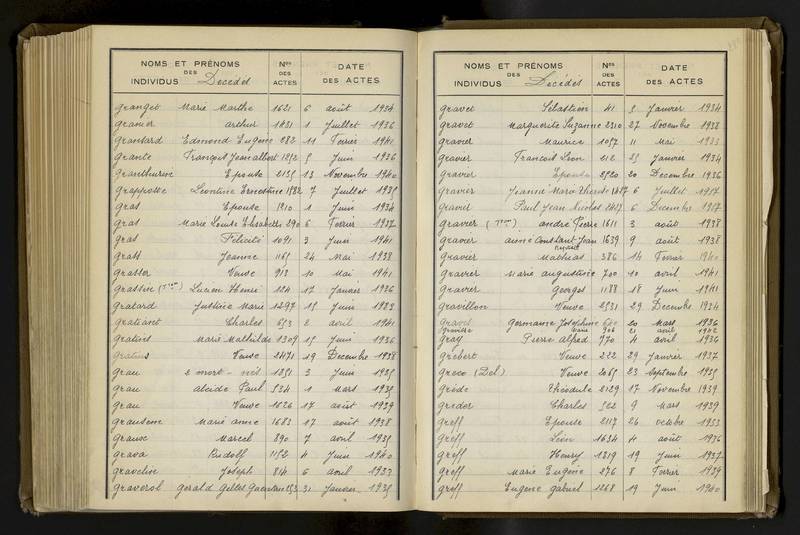 NOMS ET PRÉNOMS DES INDIVIDUS Décédés Nos DES ACTES DATE DES ACTES
Granget Marie Marthe 1621 6 août 1934
Granier arthur 1431 1 Juillet 1936
Edmond Eugene 282 11 Fevrier 1941
Grante François Jean albert 1252 5 Juin 1936
Epouse 2135 13 Novembre 1940
Grappotte Léontine Ernestine 1582 7 Juillet 1935
Gras Epouse 1210 1 Juin 1934
Gras Marie Louise Elisabeth 290 6 Fevrier 1937
Gras Félicité 1091 3 Juin 1941
Grass Jeanne 1165 24 Mai 1938
Grasser Veuve 913 10 Mai 1941
Lucien Henri 124 17 Janvier 1936
Gratard Justine Marie 1297 15 Juin 1933
Gratianet Charles 653 2 avril 1941
Gratins Marie Mathilde 1309 15 Juin 1936
Gratins Veuve 2471 19 Decembre 1938
Grau 2 mort-nés 1251 3 Juin 1935
Grau alcide Paul 534 1 Mars 1935
Grau Veuve 1626 17 août 1939
Marie anne 1683 17 août 1938
Marcel 890 7 avril 1935
Grava Rudolf 1152 4 Juin 1940
Graveline Joseph 814 6 avril 1933
Graverol Gerald Gilles 253 31 Janvier 1935
NOMS ET PRÉNOMS DES INDIVIDUS Décédés Nos DES ACTES DATE DES ACTES
Gravet Sébastien 41 5 Janvier 1934
Gravet Marguerite Suzanne 2310 27 Novembre 1938
Gravier Maurice 1057 11 Mai 1933
Gravier François Léon 212 25 Janvier 1934
Gravier Epouse 2520 20 Decembre 1936
Gravier 6 Juillet 1937
Gravier Paul Jean Nicolas 6 Decembre 1937
Gravier andré Pierre 1611 3 août 1938
Gravier aimé Constant Jean 1639 9 août 1938
Gravier Mathias 386 14 Fevrier 1940
Gravier Marie augustine 700 10 avril 1941
Gravier Georges 1188 18 Juin 1941
Gravillon Veuve 2531 29 Decembre 1934
Germaine Josephine 600 20 Mars 1936
Gray Pierre alfred 770 4 avril 1936
Grebert Veuve 222 29 Janvier 1937
Greco (Del) Veuve 2065 23 Septembre 1935
Grede Théodule 2129 17 Novembre 1939
Greder Charles 562 9 Mars 1939
Greff Epouse 2117 26 octobre 1933
Greff Léon 1634 4 août 1936
Greff Henry 1319 19 Juin 1937
Greff Marie Eugène 276 8 Fevrier 1939
Greff Eugene Gabriel 1268 19 Juin 1940